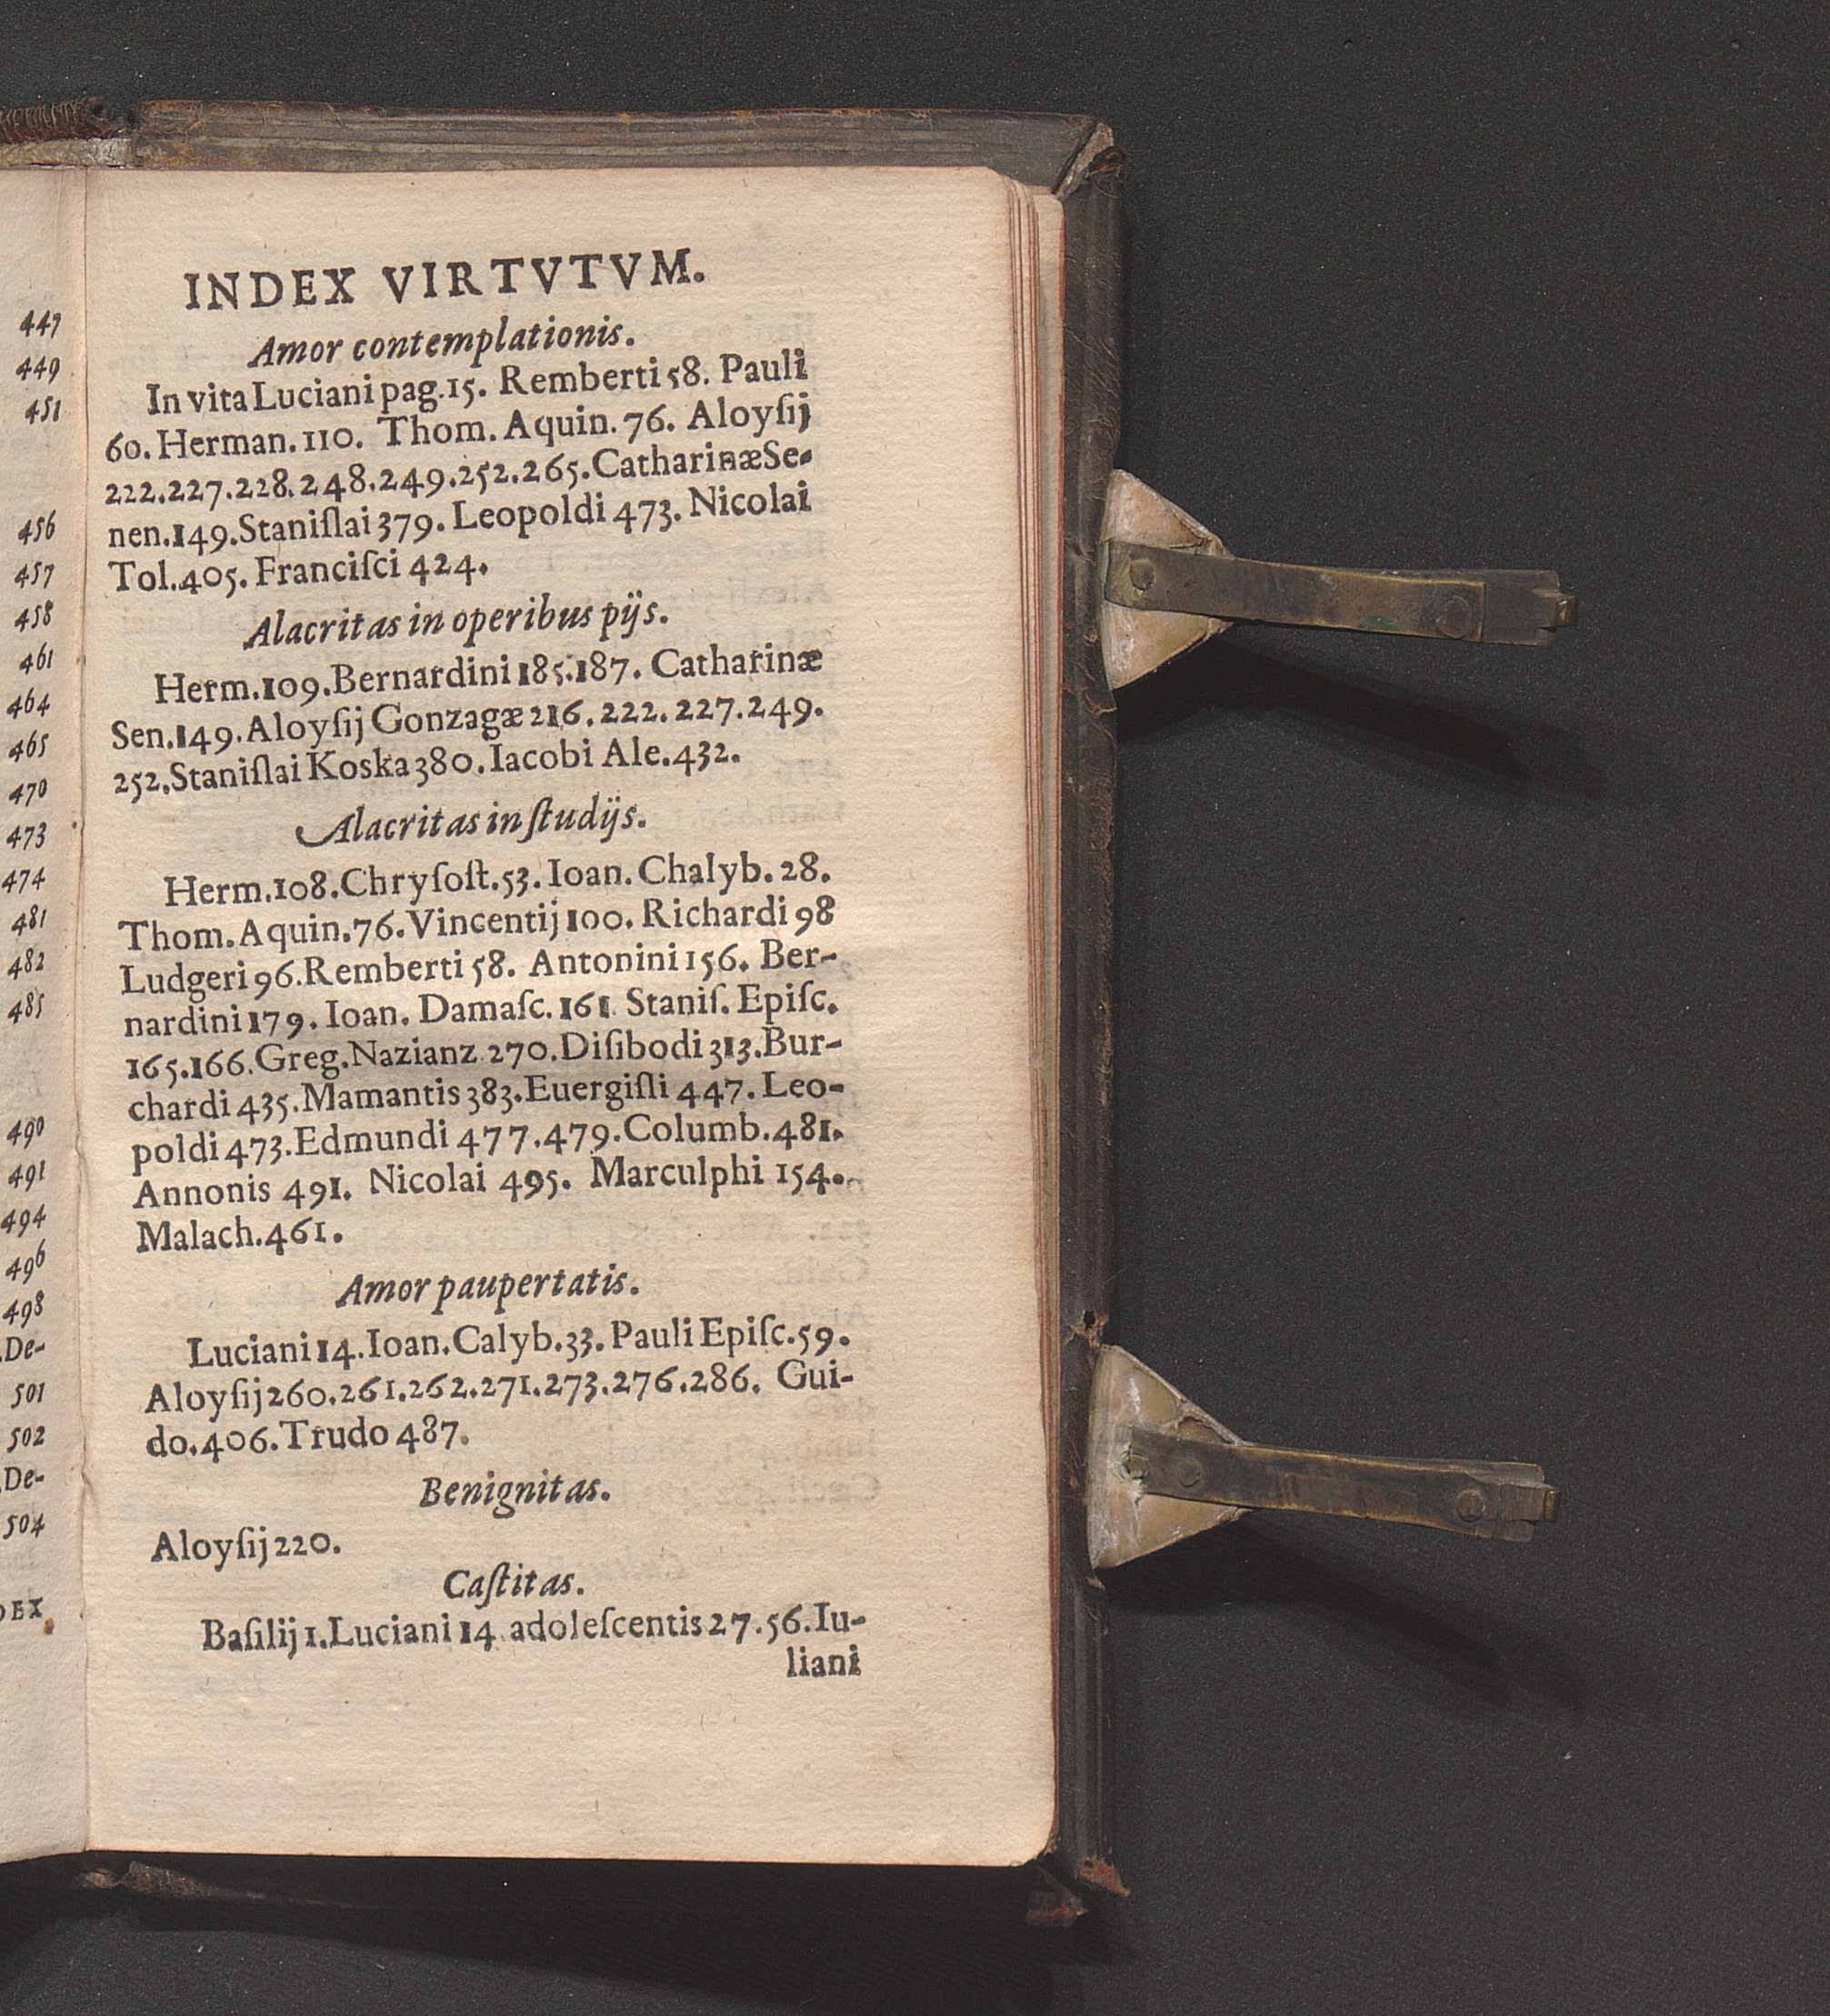 447
449
451
456
457
458
461
464
465
470
473
474
481
482
485
490
491
494
496
498
De-
501
502
De-
504
DEX
INDEX VIRTVTVM.
Amor contemplationis.
In vita Luciani pag.15. Remberti 58. Pauli
60. Herman. 110. Thom. Aquin. 76. Aloyſij
222.227.228.248.249.252.265.Catharinæ Se-
nen.149.Staniſlai 379. Leopoldi 473. Nicolai
Tol.405. Franciſci 424.
Alacritas in operibus pijs.
Herm.109.Bernardini 185.187. Catharinæ
Sen.149.Aloyſij Gonzagæ 216.222.227.249.
252.Staniſlai Koska 380.Iacobi Ale.432.
Alacritas in ſtudijs.
Herm.108.Chryſoſt.53. Ioan. Chalyb. 28.
Thom. Aquin.76.Vincentij 100. Richardi 98
Ludgeri 96.Remberti 58. Antonini 156. Ber-
nardini 179. Ioan. Damaſc. 161 Staniſ. Epiſc.
165.166.Greg.Nazianz 270.Diſibodi 313.Bur-
chardi 435.Mamantis 383.Euergiſli 447. Leo-
poldi 473.Edmundi 477.479.Columb.481.
Annonis 491. Nicolai 495. Marculphi 154.
Malach.461.
Amor paupertatis.
Luciani 14.Ioan.Calyb.33. Pauli Epiſc.59.
Aloyſij 260.261.262.271.273.276.286. Gui-
do.406.Trudo 487.
Benignitas.
Aloyſij 220.
Caſtitas.
Baſilij 1.Luciani 14 adoleſcentis 27.56.Iu-
liani